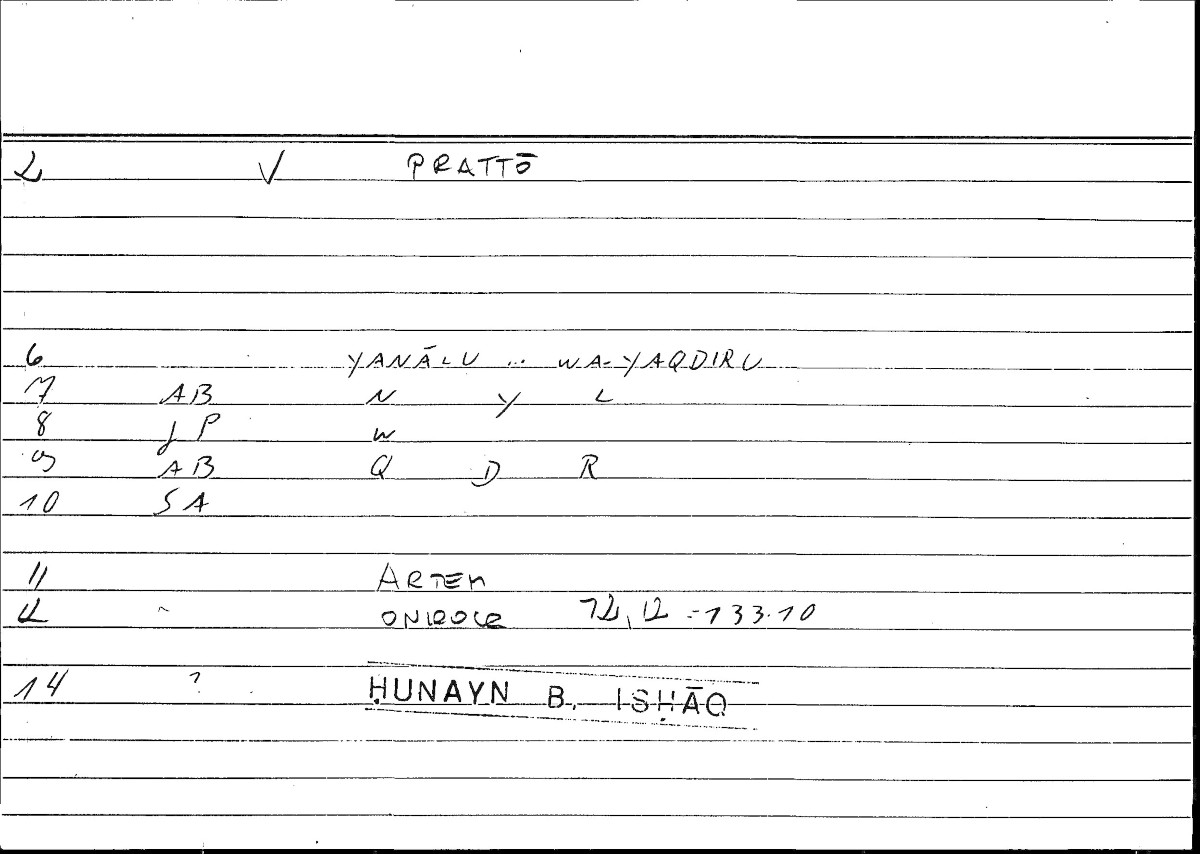 2 V PRATTŌ
6 YANĀLU ... WA-YAQDIRU
7 AB N Y L
8 JP W
9 AB Q D R
10 SA
11 ARTEM
12 ONIROCR 72,12 = 133.10
14 ? ḤUNAYN B. ISḤĀQ